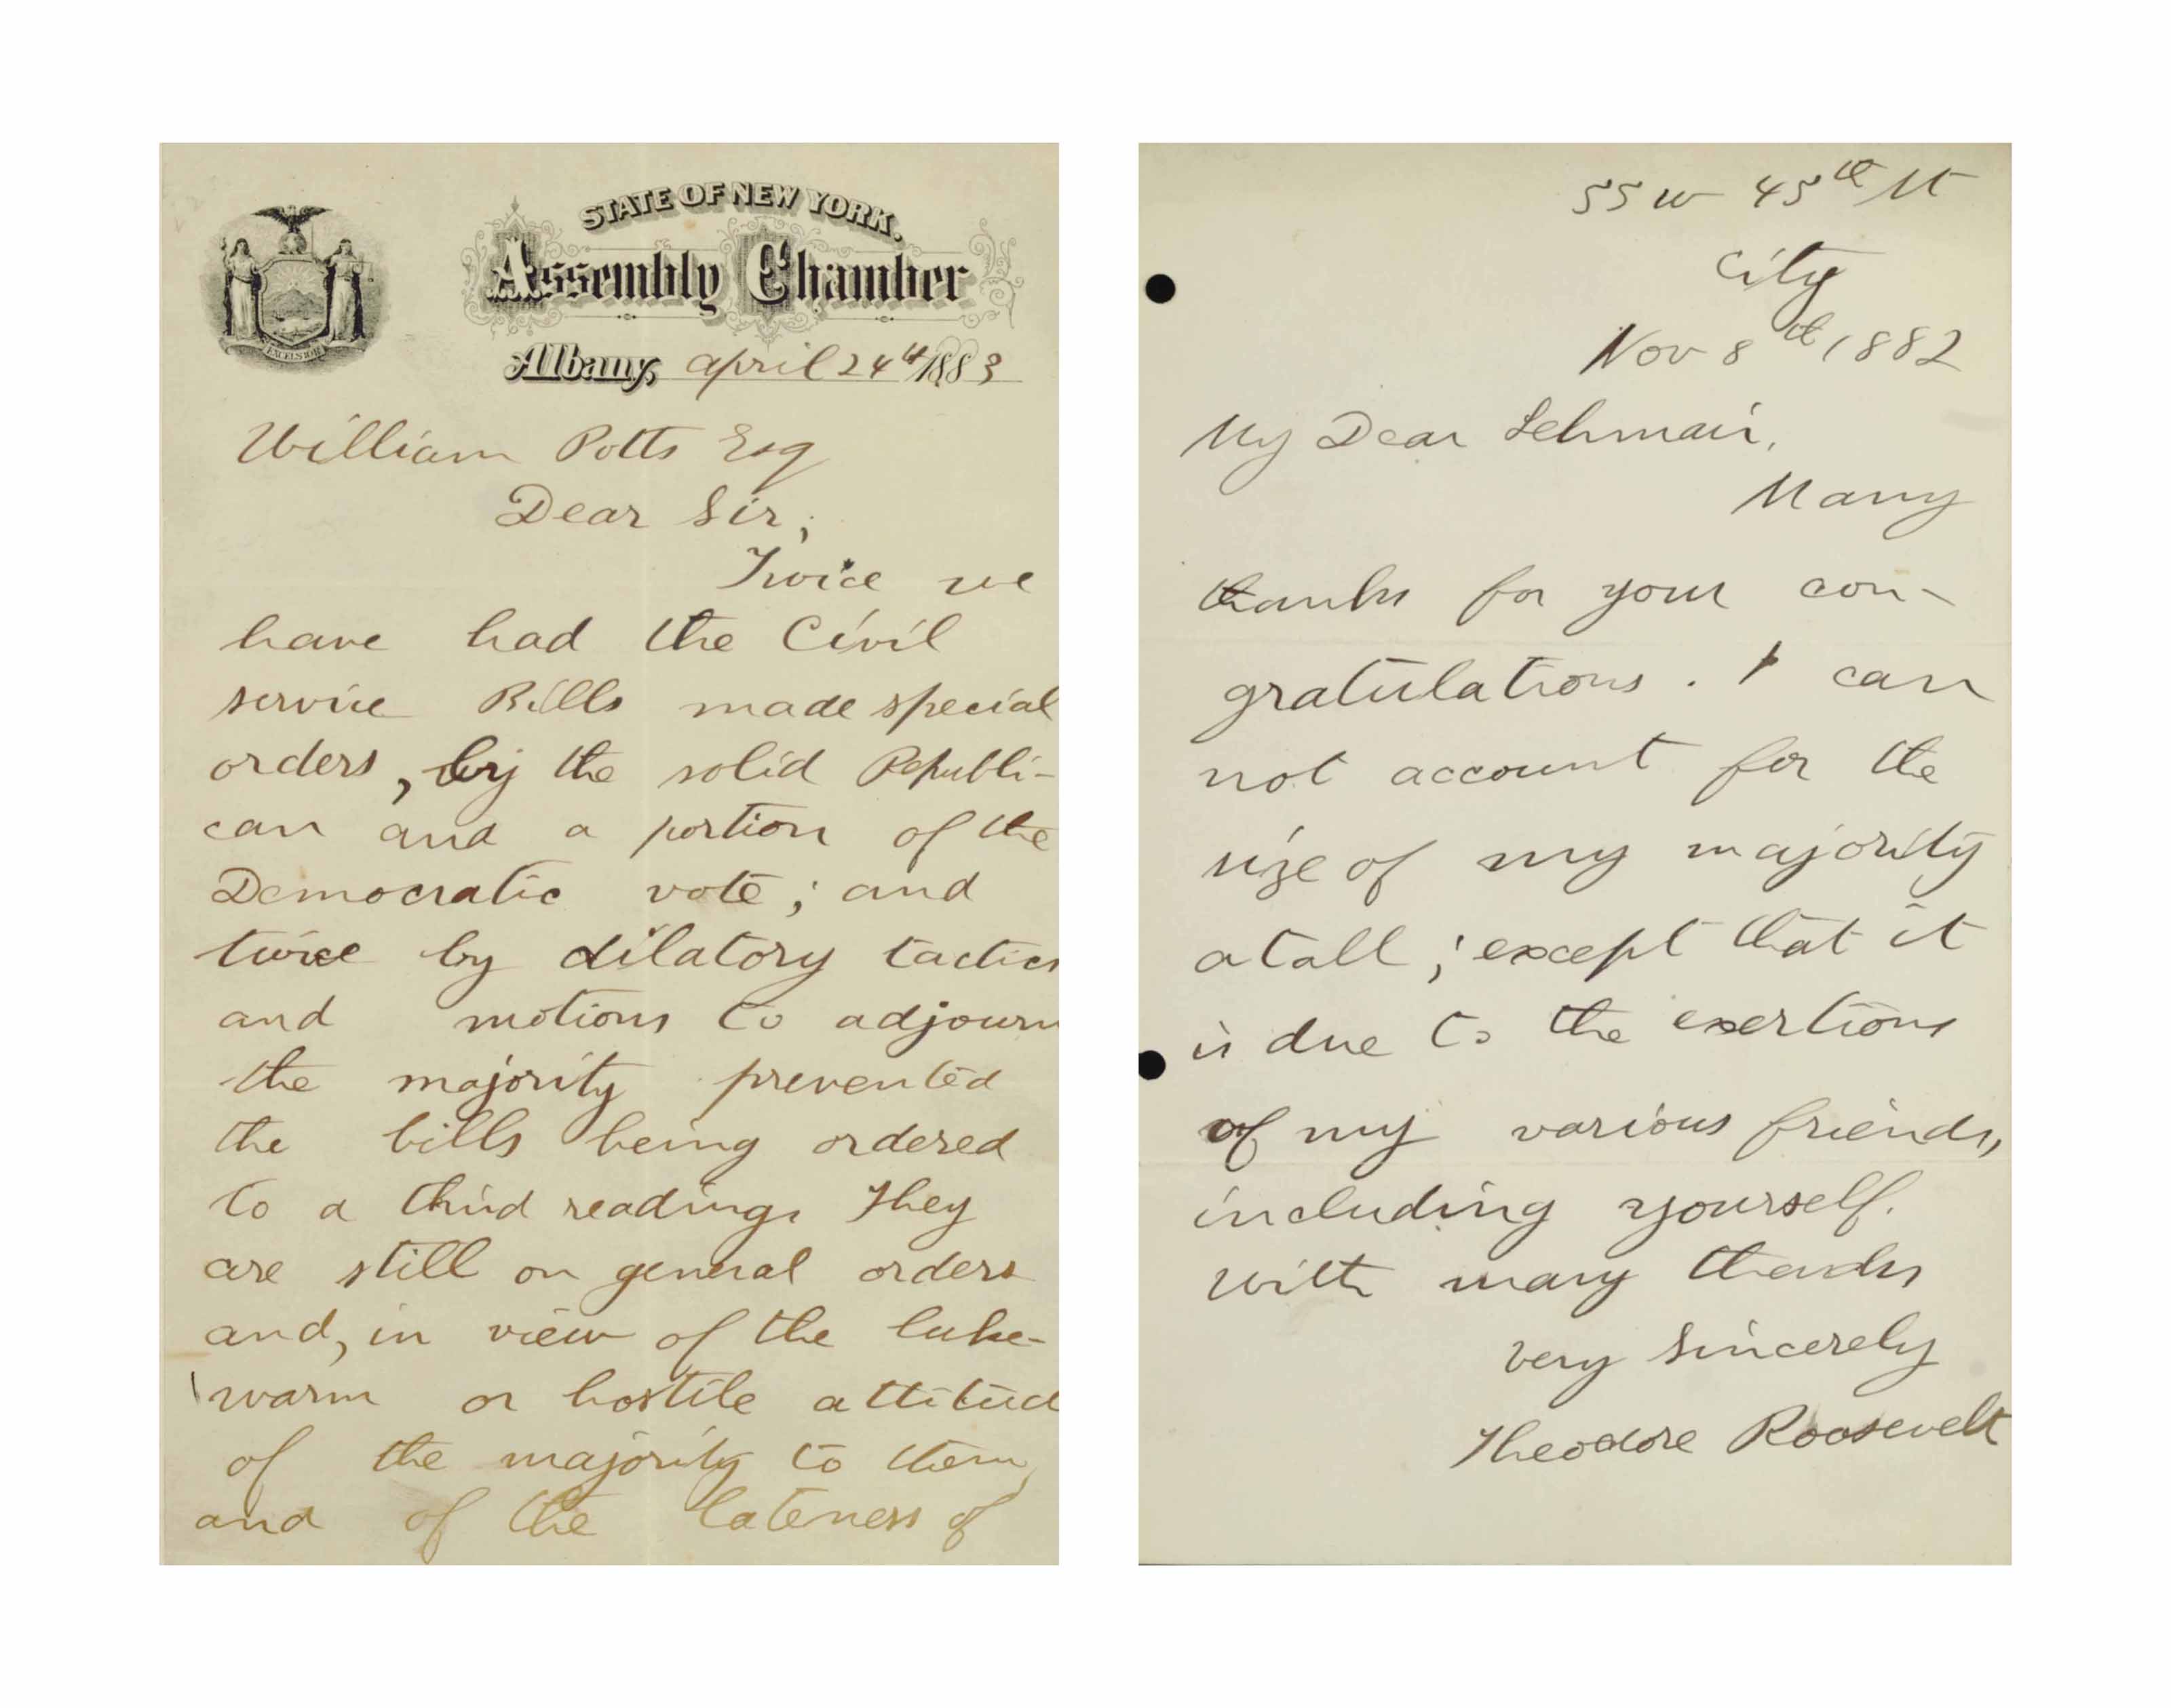 STATE OF NEW YORK.
Assembly Chamber
EXCELSIOR
Albany, april 24th 1883
William Potts Esq
Dear Sir;
Twice we
have had the Civil
service Bills made special
orders, by the solid Republi-
can and a portion of the
Democratic vote; and
twice by dilatory tactics
and motions to adjourn
the majority prevented
the bills being ordered
to a third reading. They
are still on general orders
and, in view of the luke-
warm or hostile attitud
of the majority to them,
and of the lateness of
55 W 45th St
City
Nov 8th 1882
My Dear Lehmair,
Many
thanks for your con-
gratulations. I can
not account for the
size of my majority
at all; except that it
is due to the exertions
of my various friends,
including yourself.
With many thanks
Very Sincerely
Theodore Roosevelt